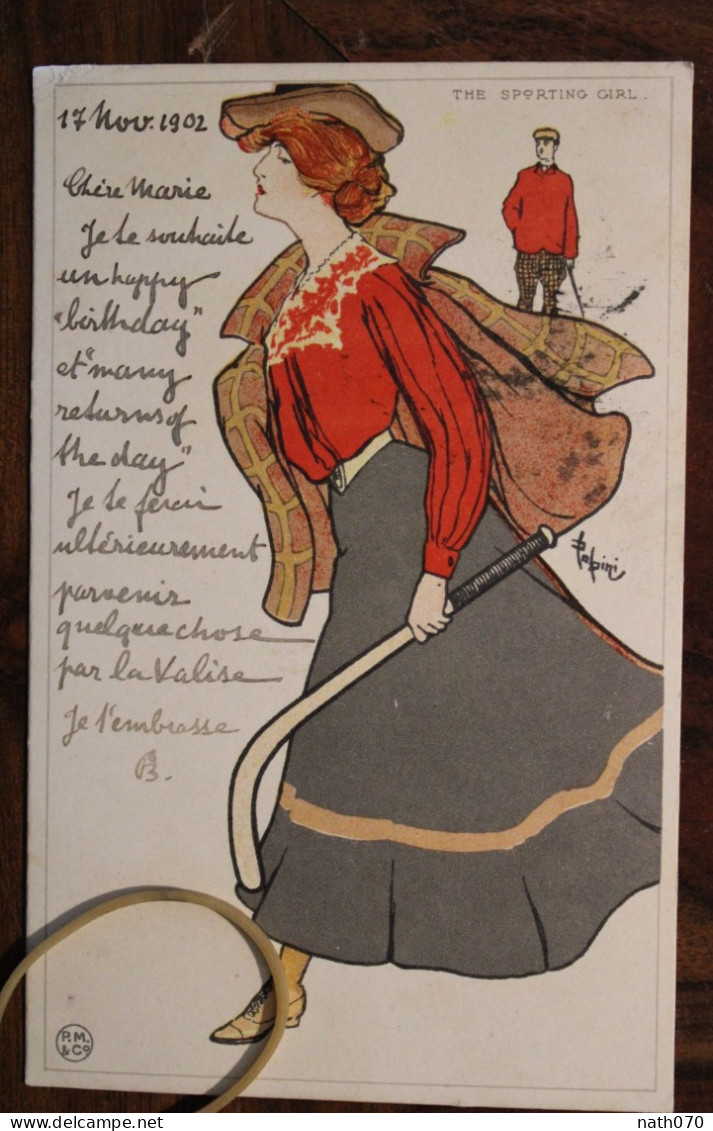 THE SPORTING GIRL.
17 Nov. 1902
Chère Marie
Je te souhaite
un happy
"birthday"
et "many
returns of
the day"
Je te ferai
ultérieurement
parvenir
quelque chose
par la Valise
Je t'embrasse
B.
P.M.
& Co
nath070